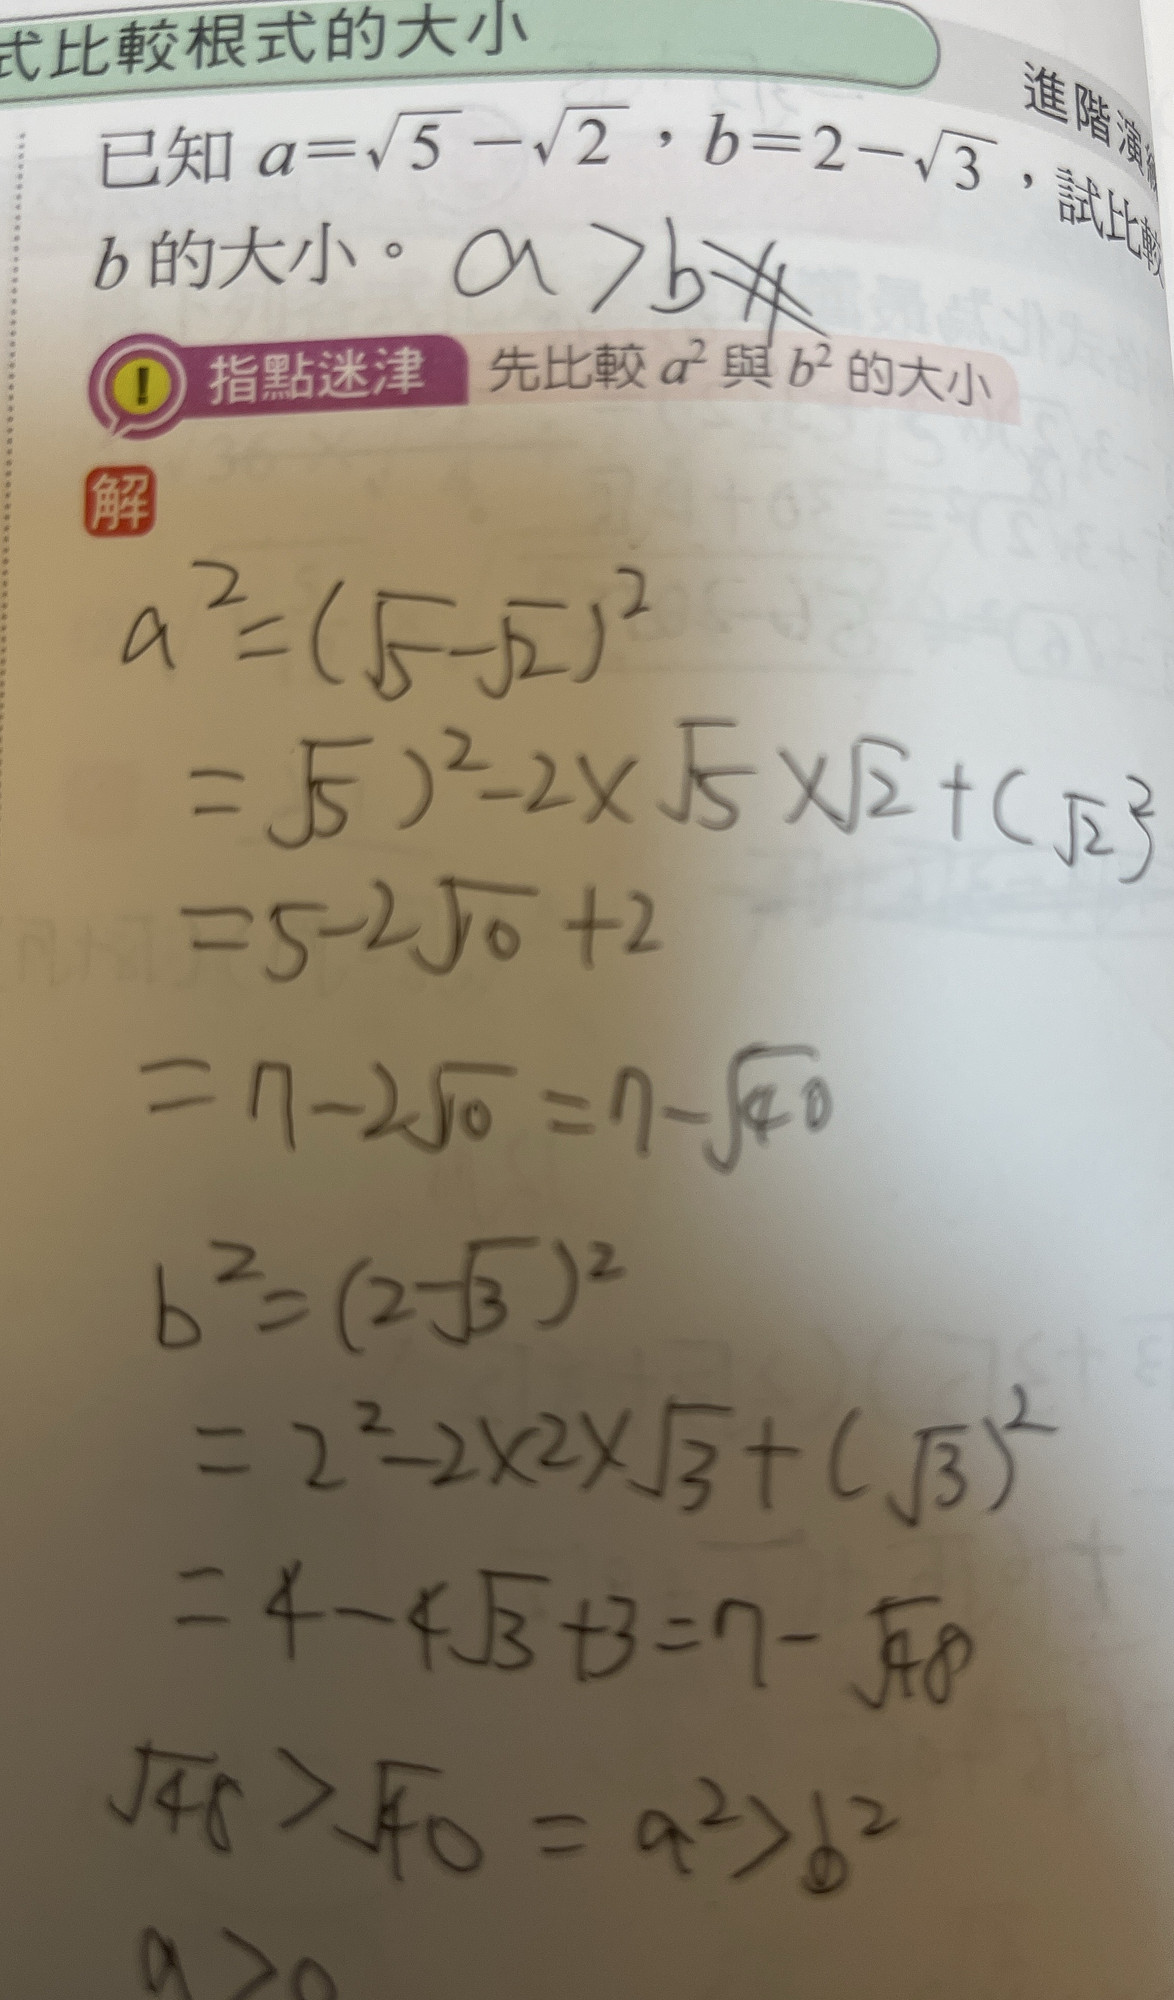 式比較根式的大小
進階演
已知 a=√5−√2，b=2−√3，試比較
b 的大小。 a>b
指點迷津 先比較 a² 與 b² 的大小
解
a²=(√5−√2)²
=√5)²−2×√5×√2+(√2)²
=5−2√10+2
=7−2√10=7−√40
b²=(2−√3)²
=2²−2×2×√3+(√3)²
=4−4√3+3=7−√48
√48>√40=a²>b²
a>0